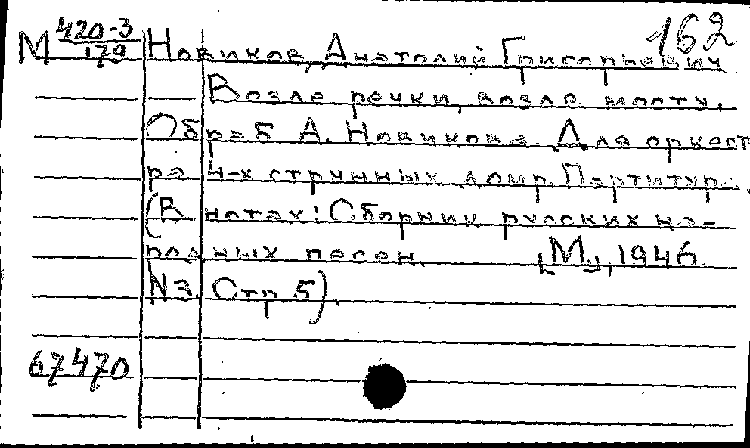 М 420-3/179 Новиков, Анатолий Григорьевич 162
Возле речки, возле мосту.
Обраб. А. Новикова. Для оркест
ра 4-х струнных домр. Партитура.
(В нотах: Сборник русских на-
родных песен. [М.], 1946.
N3. Стр. 5).
67470